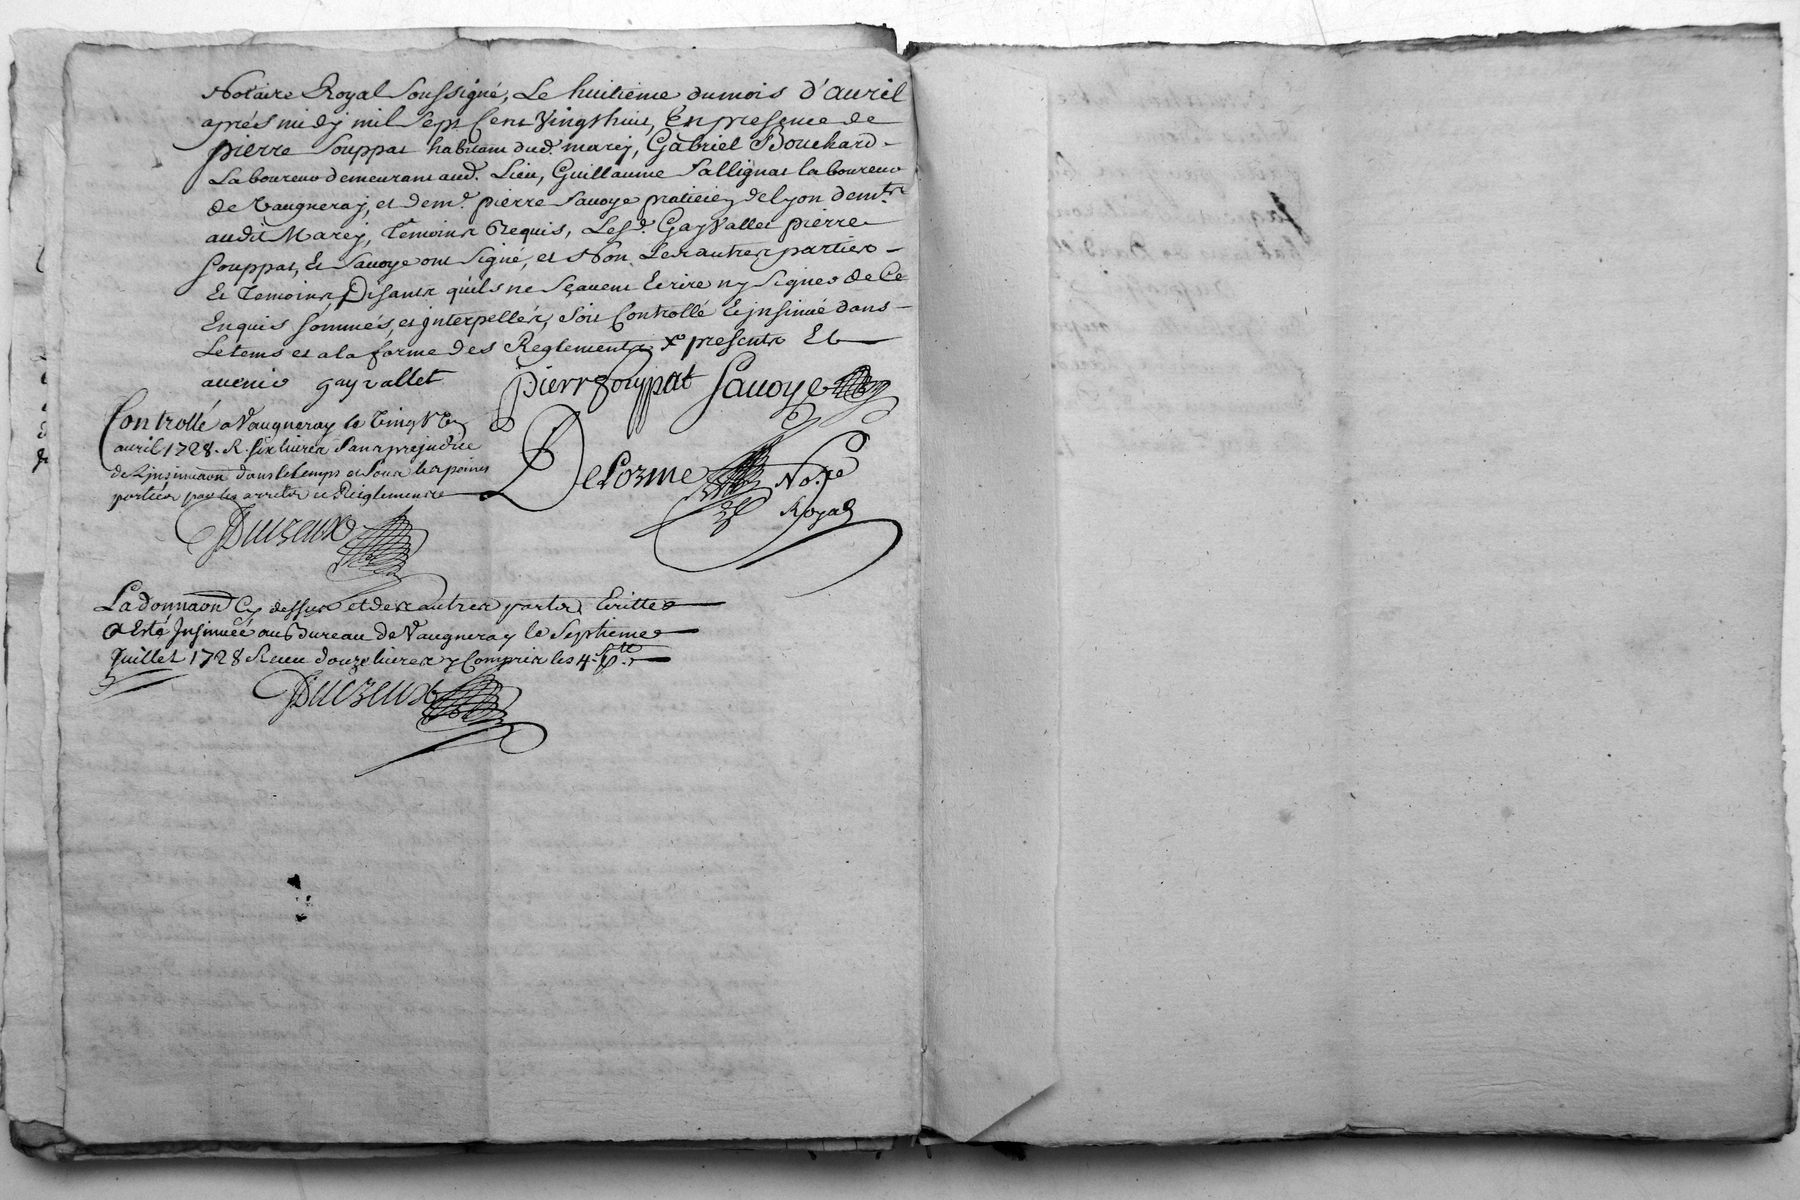 Notaire Royal soussigné, Le huitieme du mois d'auril
aprés midy mil sept cent Vingt huit, En presence de
pierre Souppat habitant dud. marcy, Gabriel Bouchard -
Laboureur demeurant aud. Lieu, Guillaume Sallignat laboureur
de Vaugneray, et de m.e pierre Sauoye praticien de lyon dem.t
audit Marcy, Temoins Requis, Lesd. Gayvallet pierre
Souppat, Et Sauoye ont signé, et Non Les autres parties -
Et Temoins Disants qu'ils ne sçauent Ecrire ny signer de Ce
Enquis sommés, et interpellés, soit Controllé et insinué dans -
Le tems et a la forme des Reglements presents Et
auenir gayvallet
pierre souppat Sauoye
Controllé a Vaugneray le Vingt
auril 1728. R. six liures sans prejudice
de L'insinuaon dans le temps et sous les peines
portées par les arrets et Reiglements
DeLorme No.re
Royal
La donnaon Cy dessus et des autres parts Ecrittes
a Esté Insinuéé au Bureau de Vaugneray le Septieme
Juillet 1728 Receu douze liures y Compris les 4